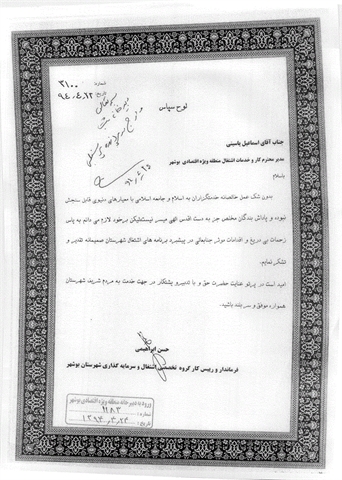 شماره: ۳۱۰۰
تاریخ: ۹۴،۴،۱۲
لوح سپاس
جناب آقای اسماعیل یاسینی
مدیر محترم کار و خدمات اشتغال منطقه ویژه اقتصادی بوشهر
باسلام
بدون شک عمل خالصانه خدمتگزاران به اسلام و جامعه اسلامی با معیارهای دنیوی قابل سنجش
نبوده و پاداش بندگان مخلص جز به دست اقدس الهی میسر نیست. لیکن برخود لازم می دانم به پاس
زحمات بی دریغ و اقدامات موثر جنابعالی در پیشبرد برنامه های اشتغال شهرستان صمیمانه تقدیر و
تشکر نمایم.
امید است در پرتو عنایت حضرت حق و با تدبیر و پشتکار در جهت خدمت به مردم شریف شهرستان
همواره موفق و سر بلند باشید.
حسن ابراهیمی
فرماندار و رییس کار گروه تخصصی اشتغال و سرمایه گذاری شهرستان بوشهر
ورود به دبیرخانه منطقه ویژه اقتصادی بوشهر
شماره: ۱۱۸۳
تاریخ: ۱۳۹۴،۴،۲۳